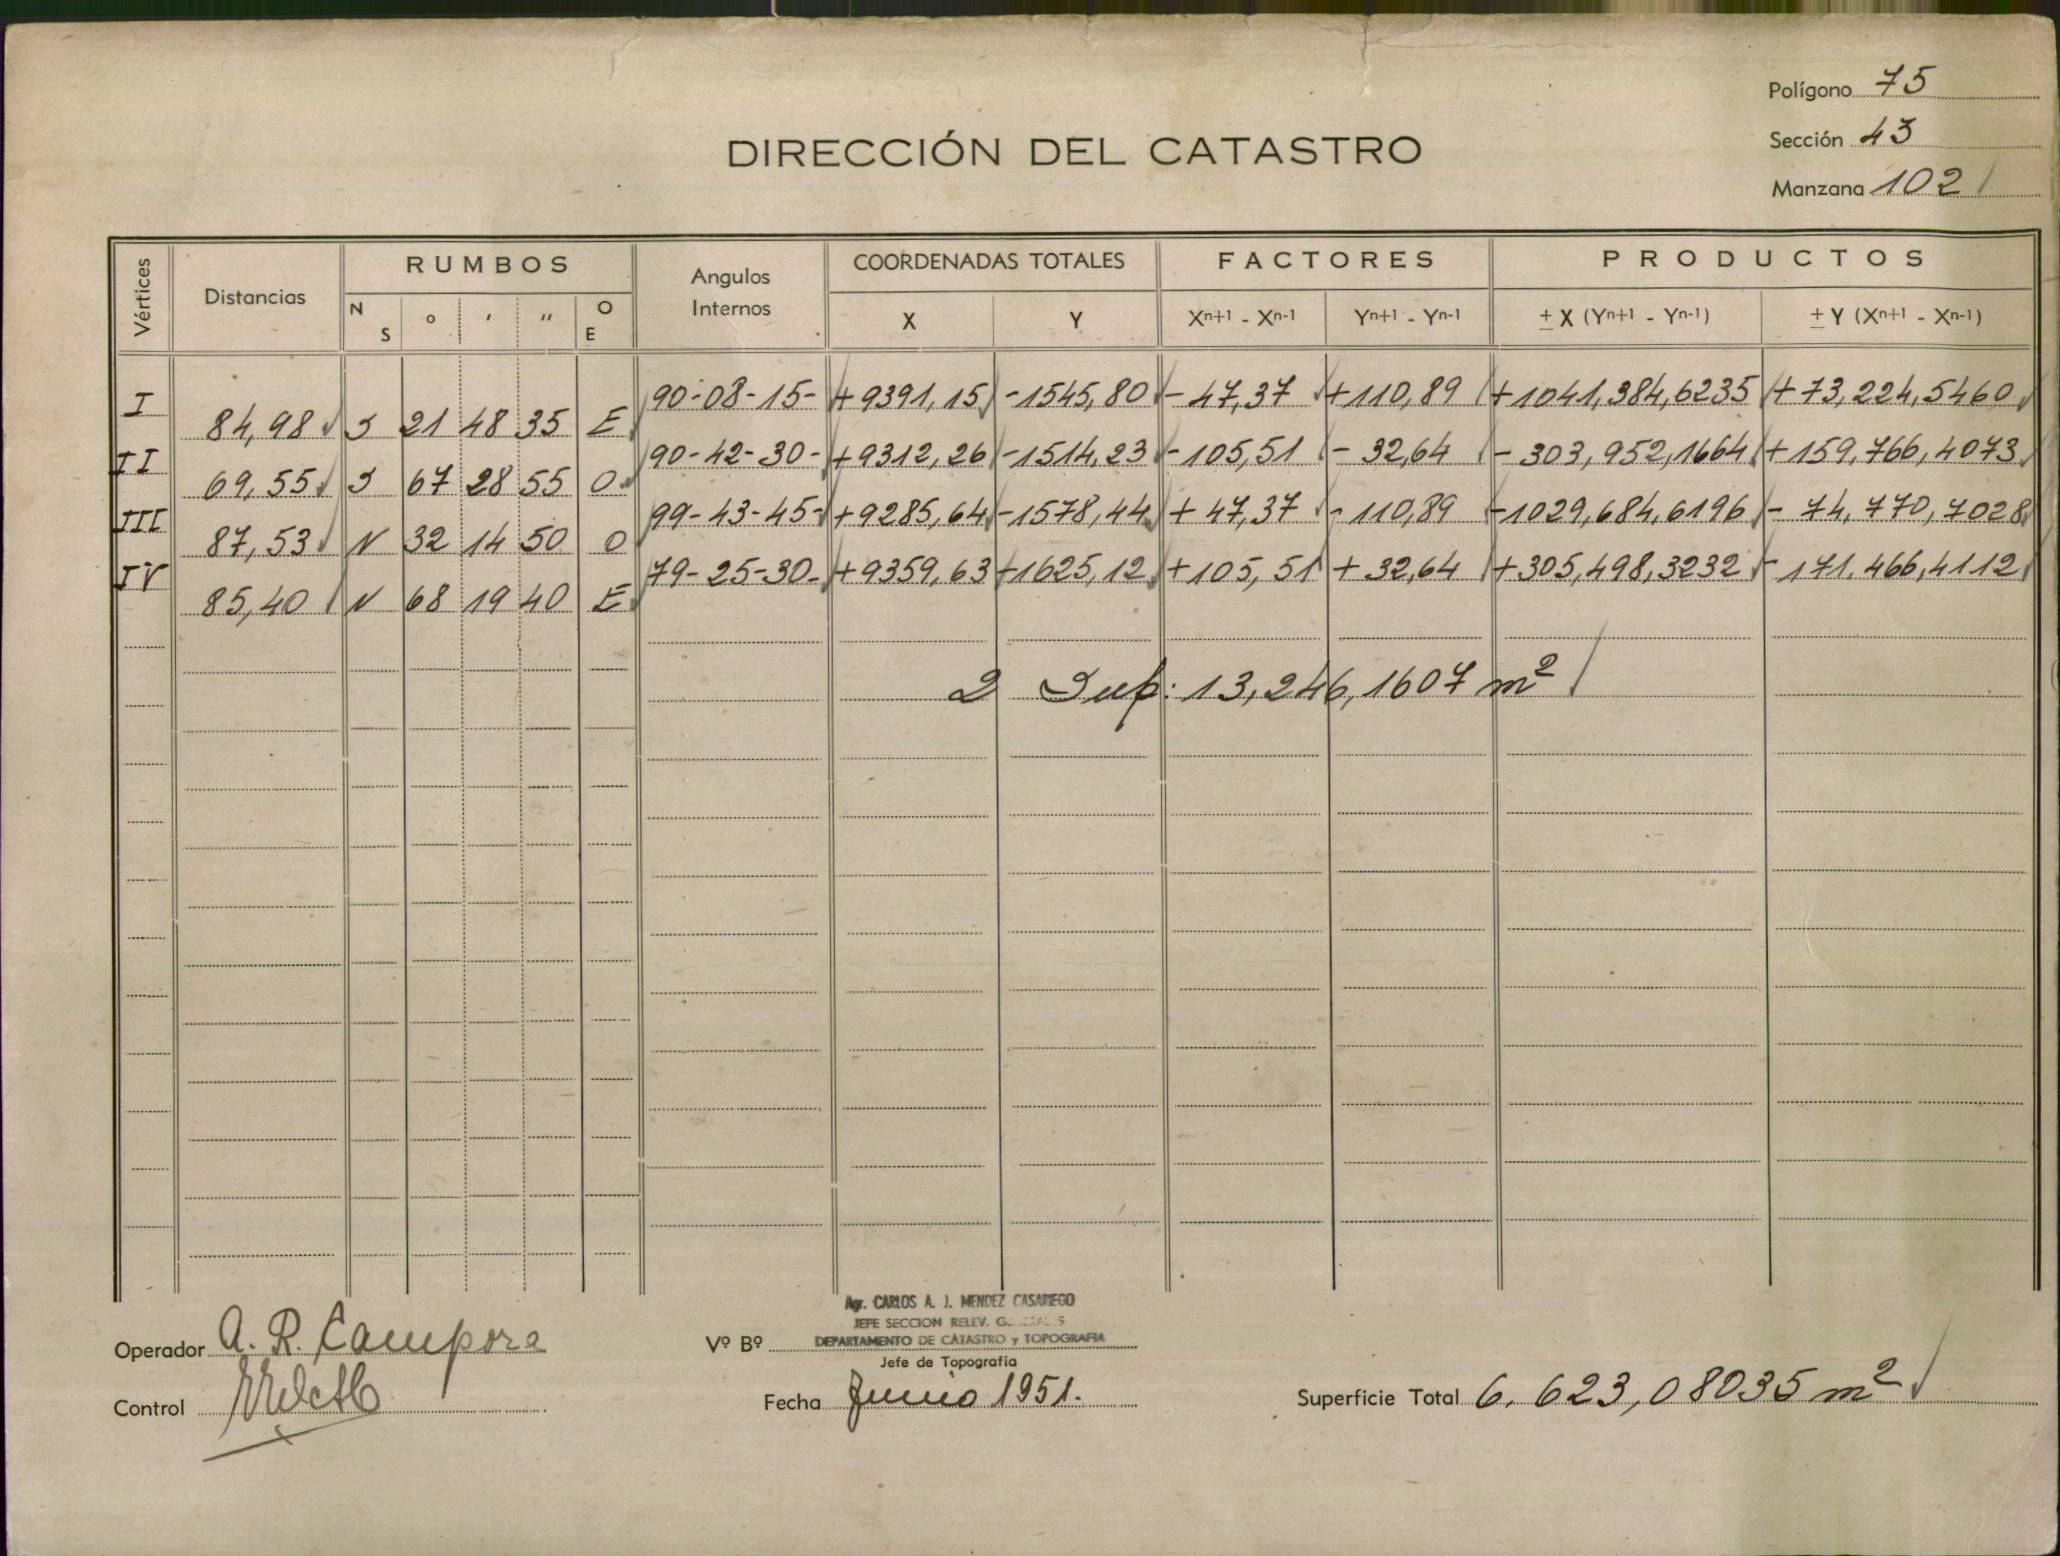 Polígono 75
Sección 43
Manzana 102
DIRECCIÓN DEL CATASTRO
Vértices Distancias RUMBOS Angulos Internos COORDENADAS TOTALES FACTORES PRODUCTOS
N S ° ' " O E X Y Xn+1 - Xn-1 Yn+1 - Yn-1 ± X (Yn+1 - Yn-1) ± Y (Xn+1 - Xn-1)
I 90-08-15- +9391,15 -1545,80 -47,37 +110,89 +1041,384,6235 +73,224,5460
84,98 S 21 48 35 E
II 90-42-30- +9312,26 -1514,23 -105,51 -32,64 -303,952,1664 +159,766,4073
69,55 S 67 28 55 O
III 99-43-45- +9285,64 -1578,44 +47,37 -110,89 -1029,684,6196 -74,770,7028
87,53 N 32 14 50 O
IV 79-25-30- +9359,63 -1625,12 +105,51 +32,64 +305,498,3232 -171.466,4112
85,40 N 68 19 40 E
2 Sup: 13,246,1607 m²
Operador A. R. Campora
Vº Bº
Agr. CARLOS A. J. MENDEZ CASARIEGO
JEFE SECCION RELEV. GENERALES
DEPARTAMENTO DE CATASTRO y TOPOGRAFIA
Jefe de Topografía
Control
Fecha Junio 1951.
Superficie Total 6.623,08035 m²